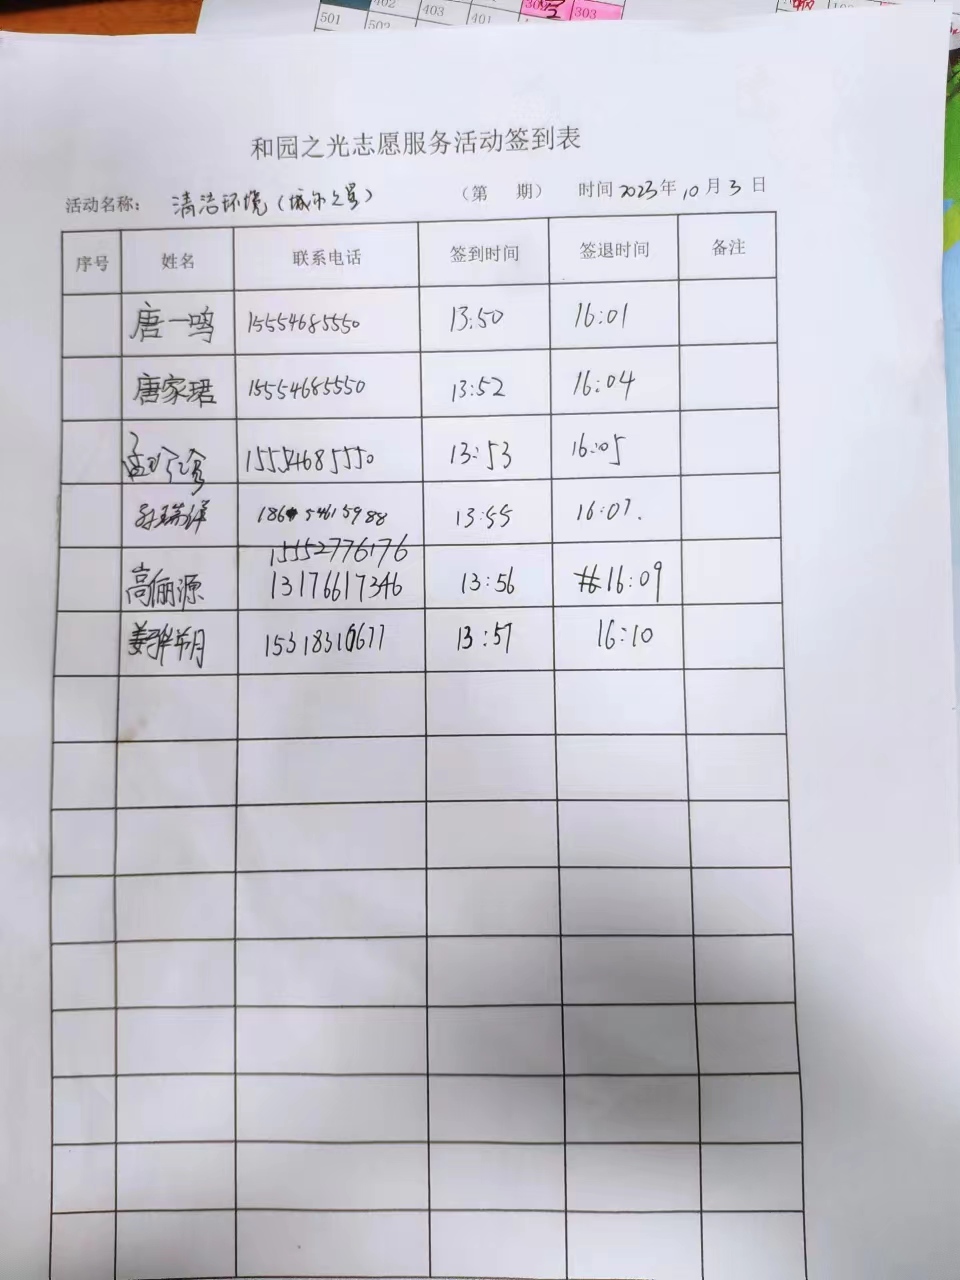 501
403
401
303
和园之光志愿服务活动签到表
活动名称: 清洁环境(城市之星) (第 期) 时间 2023年 10月 3日
序号 姓名 联系电话 签到时间 签退时间 备注
唐一鸣 15554685550 13:50 16:01
唐家珺 15554685550 13:52 16:04
15554685550 13:53 16:05
186 54615988 13:55 16:07.
15552776176
高俪源 13176617346 13:56 16:09
15318310677 13:57 16:10